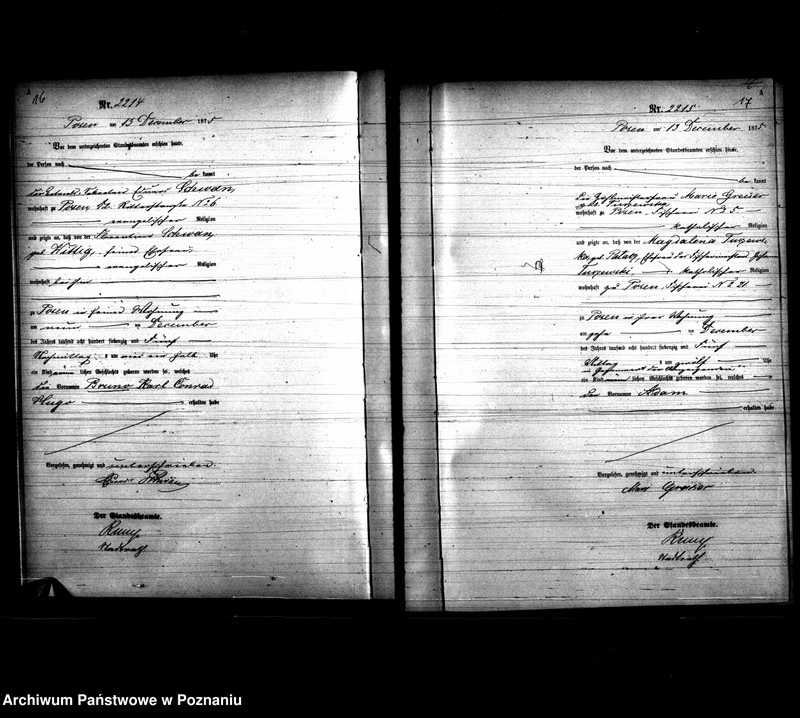 A
16
Nr. 2214
Posen am 13 December 1875
Vor dem unterzeichneten Standesbeamten erschien heute,
der Person nach
be kannt
Schwan,
wohnhaft zu Posen, Ritterstraße No 6
evangelischer Religion
und zeigte an, daß von der Schwan,
geb. Wittig, seiner Ehefrau,
evangelischer Religion
wohnhaft bei ihm
zu Posen in seiner Wohnung
am neun ten December
des Jahres tausend acht hundert siebenzig und fünf
Nachmittag s um ein ein halb Uhr
ein Kind männlichen Geschlechts geboren worden sei, welches
die Vornamen Bruno Karl Conrad
Hugo
erhalten habe
Vorgelesen, genehmigt und unterschrieben.
Schwan
Der Standesbeamte.
Rump
Stadtrath
A
17
Nr. 2215
Posen am 13 December 1875
Vor dem unterzeichneten Standesbeamten erschien heute,
der Person nach
be kannt
Die Marie
wohnhaft zu Posen, Fischerei No 5
katholischer Religion
und zeigte an, daß von der Magdalena
geb. Ehefrau des
katholischer Religion
wohnhaft zu Posen, Fischerei No 21
zu Posen in ihrer Wohnung
am December
des Jahres tausend acht hundert siebenzig und fünf
Mittag s um zwölf Uhr
in Gegenwart der
ein Kind männlichen Geschlechts geboren worden sei, welches
den Vornamen Adam
erhalten habe
Vorgelesen, genehmigt und unterschrieben.
Der Standesbeamte.
Rump
Stadtrath
Archiwum Państwowe w Poznaniu